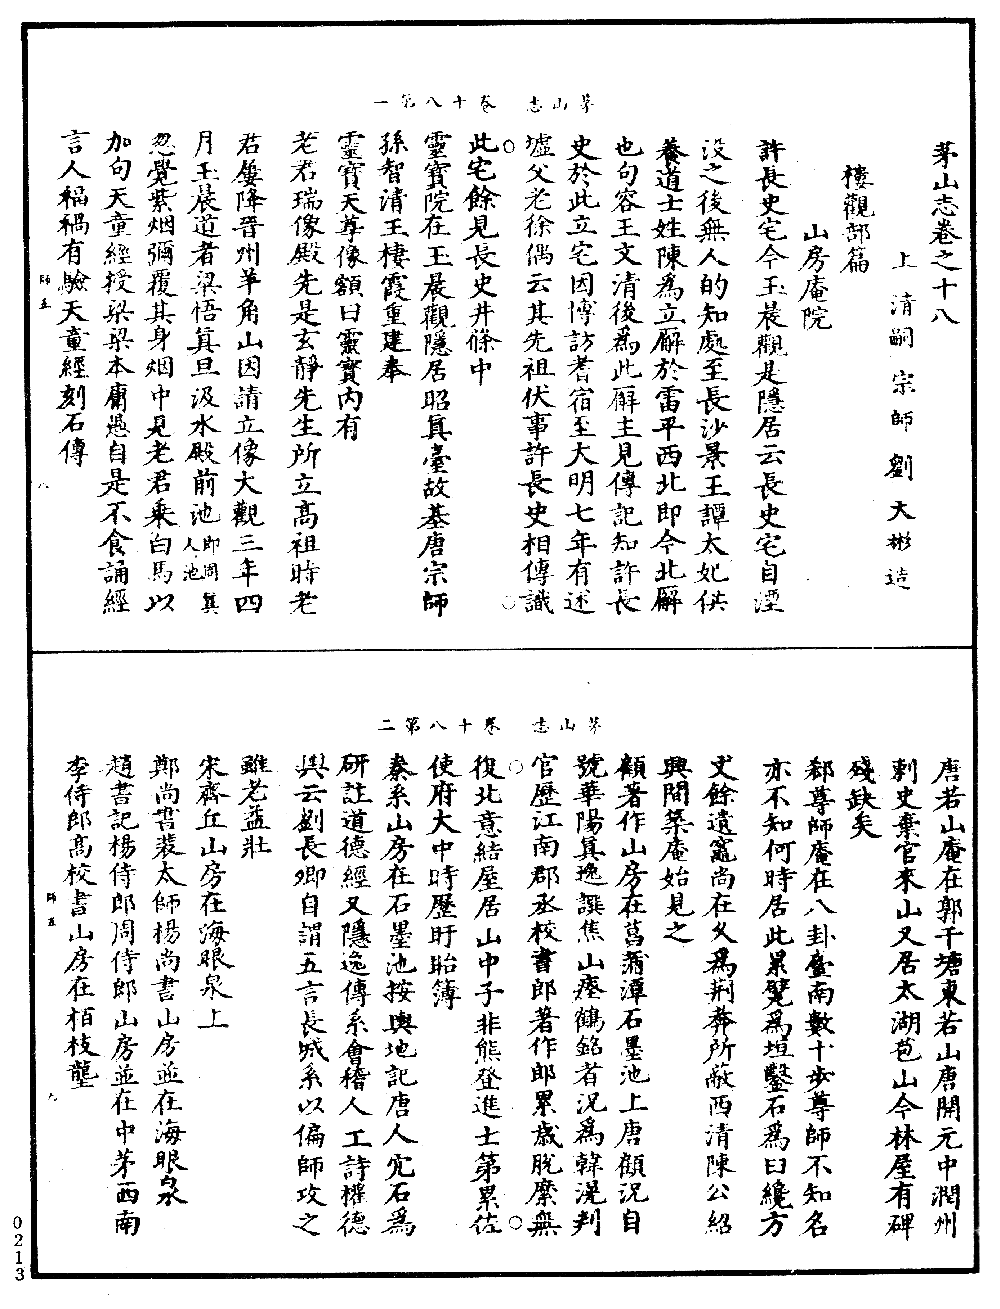 茅山志 卷十八第一
茅山志卷之十八
上清嗣宗師劉大彬造
樓觀部篇
山房庵院
許長史宅今玉晨觀是隱居云長史宅自湮
沒之後無人的知處至長沙景王譚太妃供
養道士姓陳為立廨於雷平西北即今北廨
也句容王文清後為此廨主見傳記知許長
史於此立宅因博訪耆宿至大明七年有述
墟父老徐偶云其先祖伏事許長史相傳識
此宅餘見長史井條中
靈寶院在玉晨觀隱居昭真臺故基唐宗師
孫智清王棲霞重建奉
靈寶天尊像額曰靈寶內有
老君瑞像殿先是玄靜先生所立高祖時老
君屢降晉州羊角山因請立像大觀三年四
月玉晨道者梁悟真旦汲水殿前池即周真人池
忽覺紫烟彌覆其身烟中見老君乘白馬以
加句天童經授梁梁本庸愚自是不食誦經
言人福禍有驗天童經刻石傳
師五
八
茅山志 卷十八第二
唐若山庵在郭千塘東若山唐開元中潤州
剌史棄官來山又居太湖苞山今林屋有碑
殘缺矣
郄尊師庵在八卦臺南數十步尊師不知名
亦不知何時居此累甓為垣鑿石為臼纔方
丈餘遺竈尚在久為荊莽所蔽西清陳公紹
興間築庵始見之
顧著作山房在菖蒲潭石墨池上唐顧況自
號華陽真逸譔焦山瘞鶴銘者況為韓滉判
官歷江南郡丞校書郎著作郎累歲脫縻無
復北意結屋居山中子非熊登進士第累佐
使府大中時歷盱眙簿
秦系山房在石墨池按輿地記唐人宂石為
研註道德經又隱逸傳系會稽人工詩權德
輿云劉長卿自謂五言長城系以偏師攻之
雖老益壯
宋齊丘山房在海眼泉上
鄭尚書裴太師楊尚書山房並在海眼泉
趙書記楊侍郎周侍郎山房並在中茅西南
李侍郎高校書山房在栢枝壟
師五
九
0213